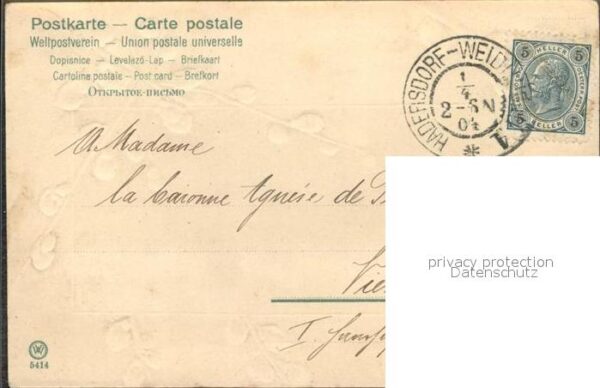 Postkarte — Carte postale
Weltpostverein — Union postale universelle
Dopisnice — Levelező-Lap — Briefkaart
Cartolina postale — Post card — Brefkort
Открытое-письмо
HADERSDORF-WEID
1/4
2-6N
04
5 HELLER 5
5 HELLER 5
A Madame
la baronne Agnése de
privacy protection
Datenschutz
Vie
I.
W
5414